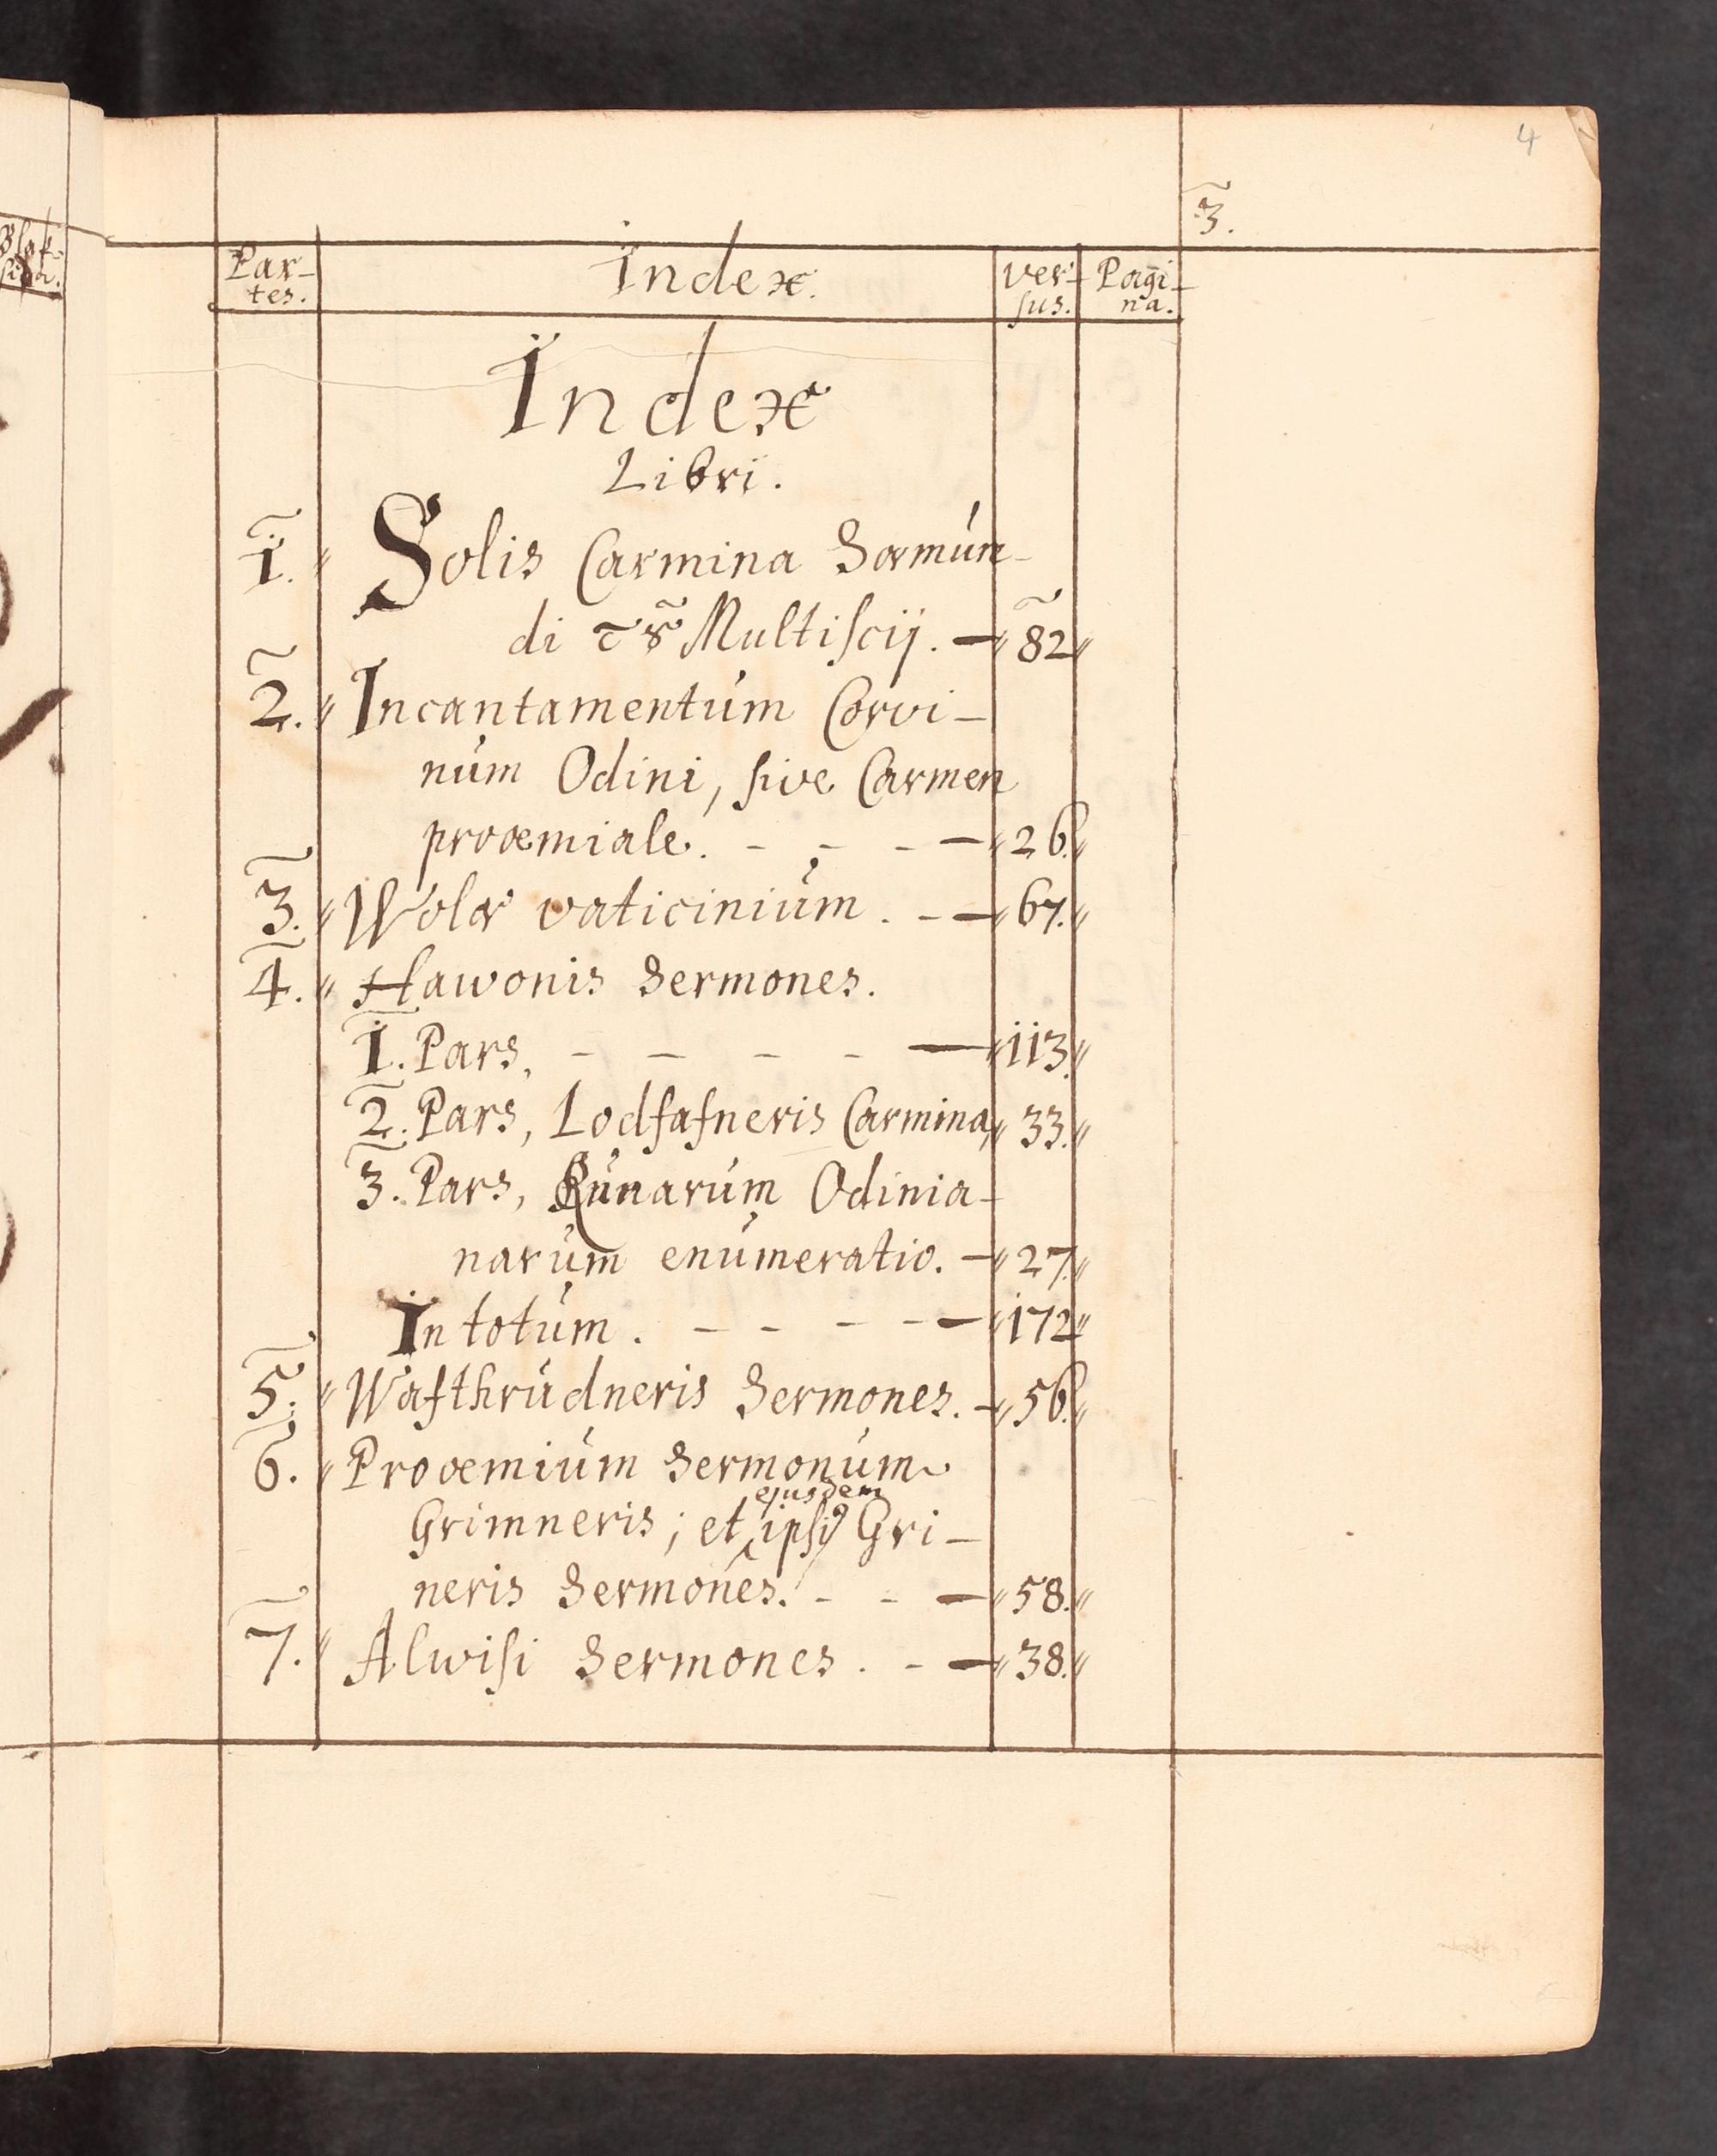 4
3.
Par-
tes.
Index.
ver-
sus.
Pagi-
na.
Index
Libri.
1. Solis Carmina Sæmun-
di τȣ̃ Multiscij. — 82
2. Incantamentum Corvi-
num Odini, sive Carmen
proœmiale. - - - — 26.
3. Wolæ vaticinium. - — 67.
4. Hawonis Sermones.
1. Pars, - - - - — 113.
2. Pars, Lodfafneris Carmina, 33.
3. Pars, Runarum Odinia-
narum enumeratio. — 27.
In totum. - - - - — 172
5. Wafthrudneris Sermones. — 56.
6. Proœmium Sermonum
ejusdem
Grimneris; et ipsiꝰ Gri-
neris Sermones. - - — 58.
7. Alwisi Sermones. - — 38.